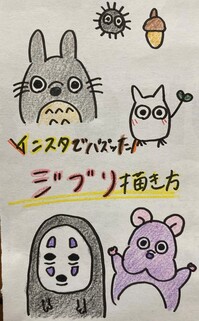 インスタでバズった!
ジブリ描き方